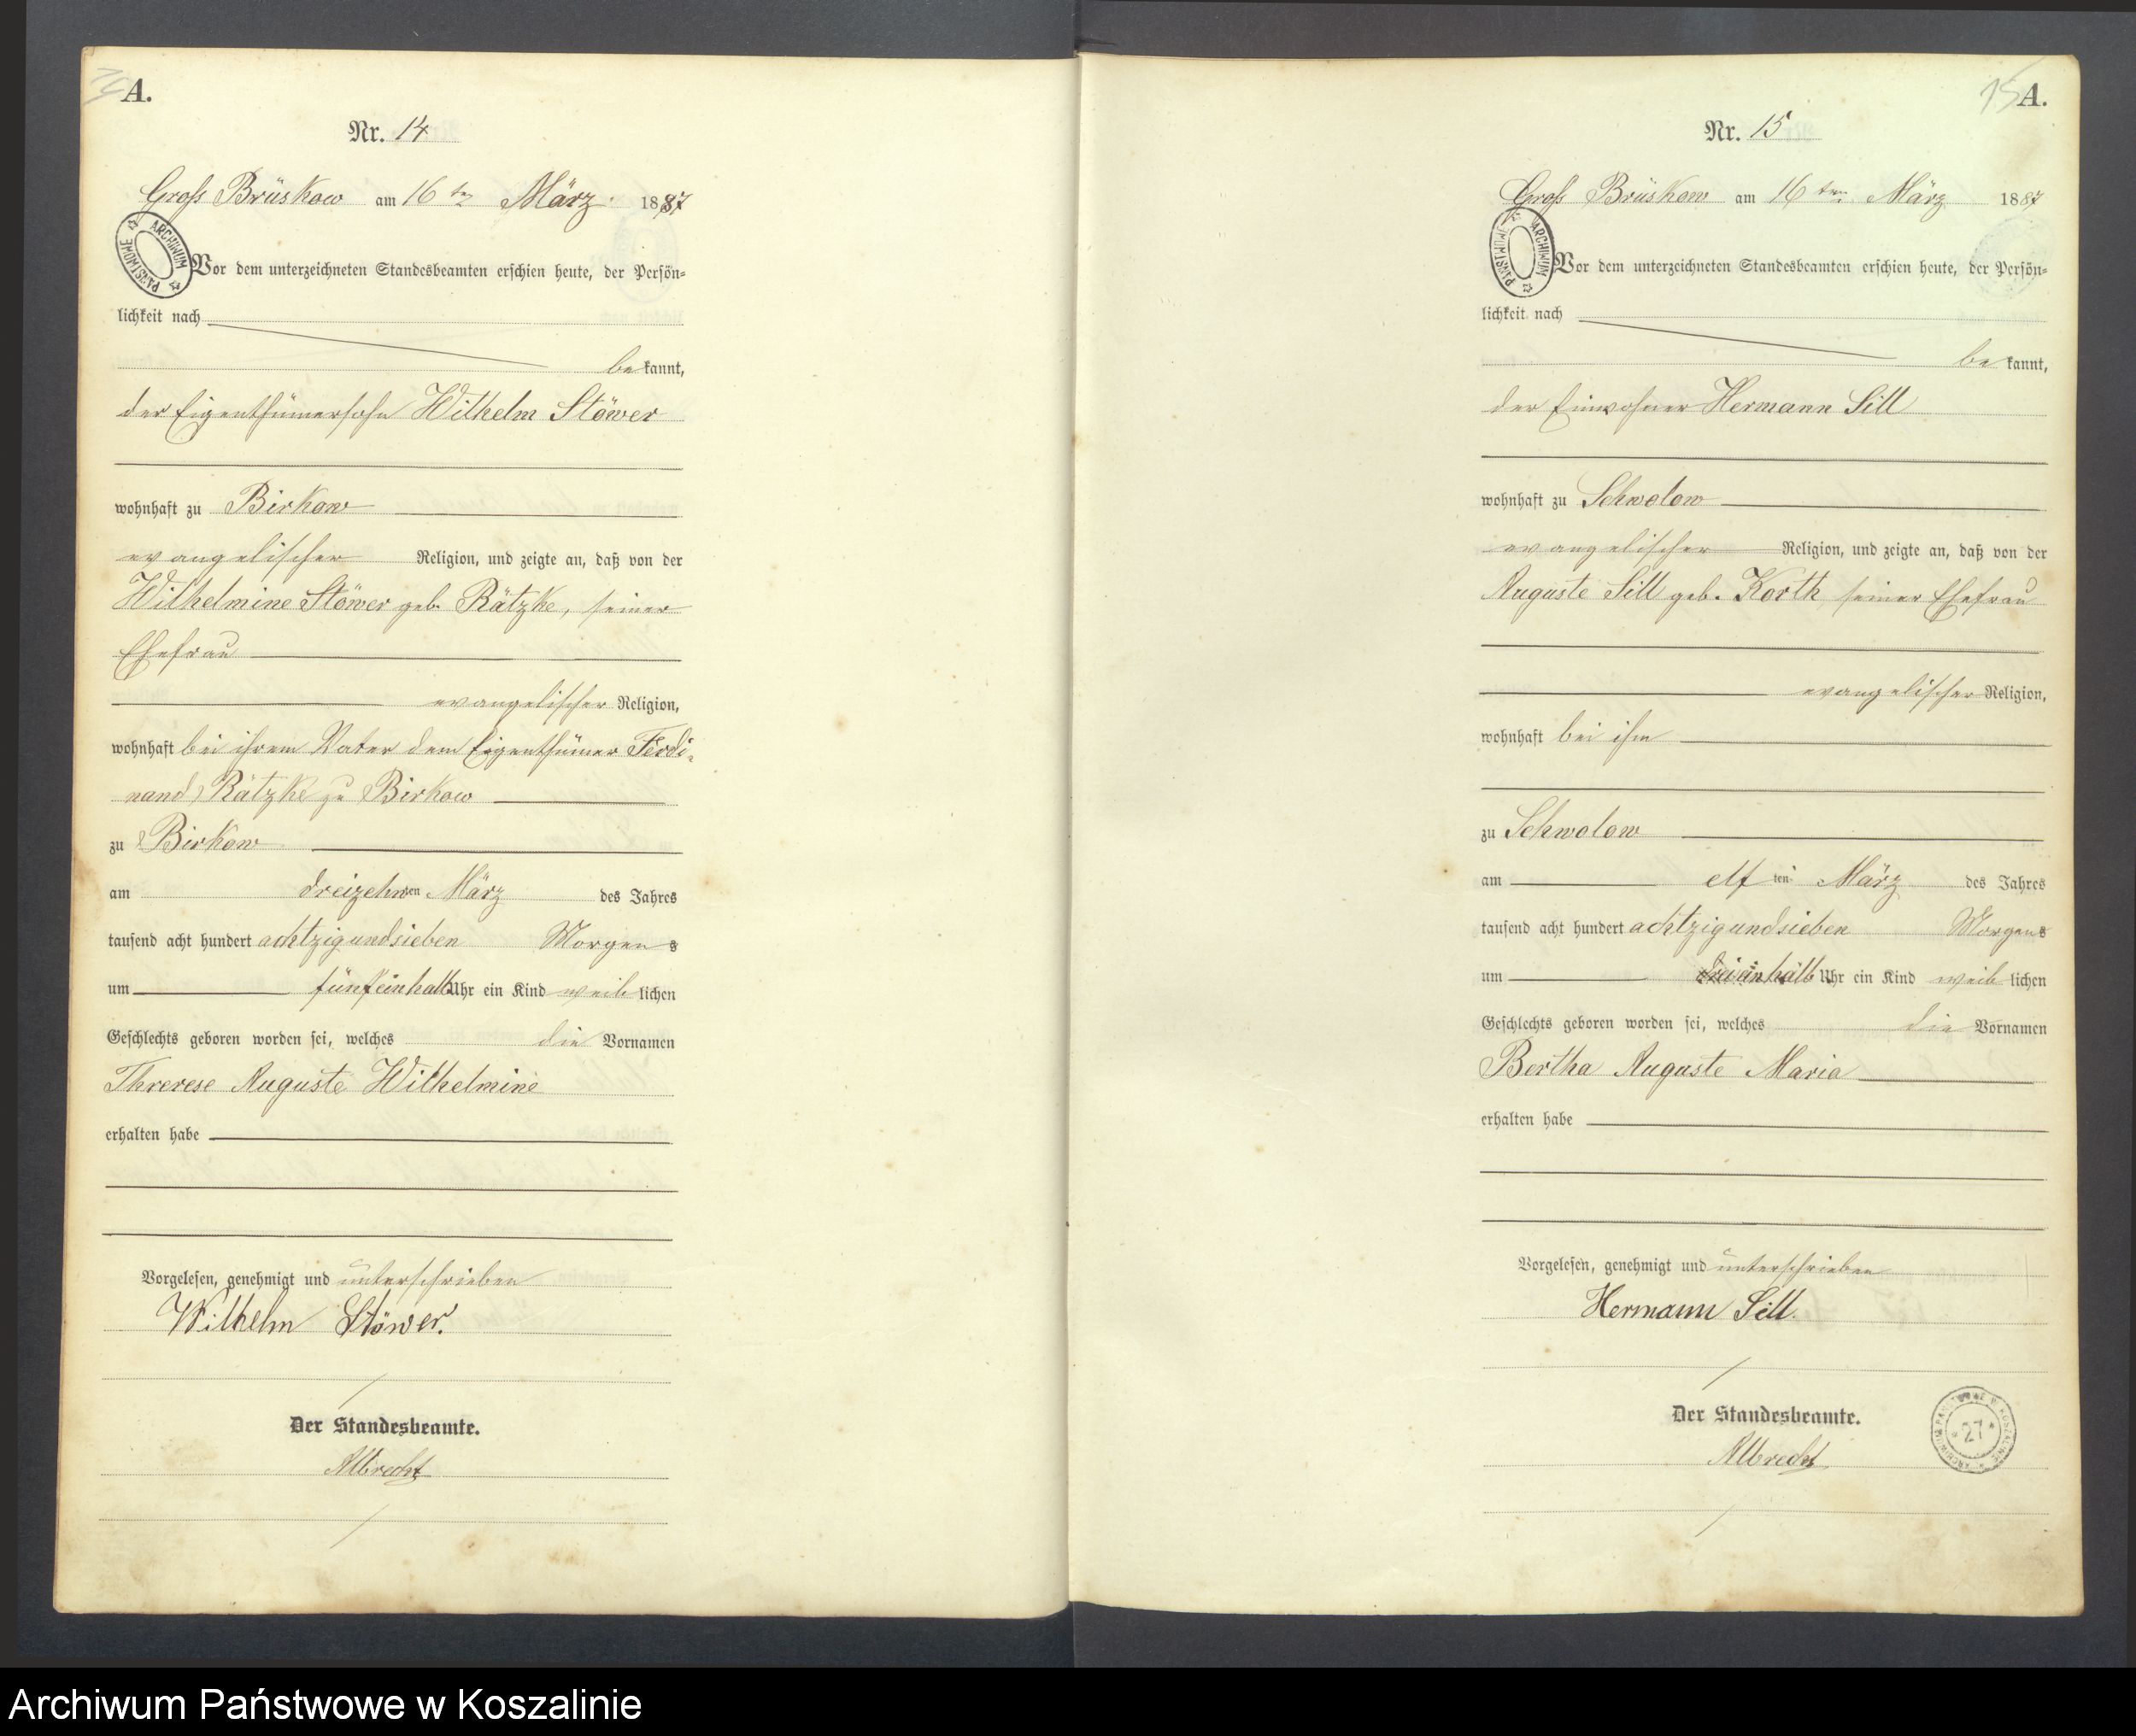 A.
Nr. 14
Gross Brüskow am 16ten März 1887
ARCHIWUM PAŃSTWOWE
Vor dem unterzeichneten Standesbeamten erschien heute, der Persön=
lichkeit nach
bekannt,
der Eigenthümersohn Wilhelm Stöwer
wohnhaft zu Birkow
evangelischer Religion, und zeigte an, daß von der
Wilhelmine Stöwer geb. Rätzke, seiner
Ehefrau
evangelischer Religion,
wohnhaft bei ihrem Vater dem Eigenthümer Ferdi-
nand Rätzke zu Birkow
zu Birkow
am dreizehnten März des Jahres
tausend acht hundert achtzigundsieben Morgens
um fünfeinhalb Uhr ein Kind weiblichen
Geschlechts geboren worden sei, welches die Vornamen
Threrese Auguste Wilhelmine
erhalten habe
Vorgelesen, genehmigt und unterschrieben
Wilhelm Stöwer.
Der Standesbeamte.
Albrecht
15 A.
Nr. 15
Gross Brüskow am 16ten März 1887
ARCHIWUM PAŃSTWOWE
Vor dem unterzeichneten Standesbeamten erschien heute, der Persön=
lichkeit nach
bekannt,
der Einwohner Hermann Sill
wohnhaft zu Schwolow
evangelischer Religion, und zeigte an, daß von der
Auguste Sill geb. Korth seiner Ehefrau
evangelischer Religion,
wohnhaft bei ihm
zu Schwolow
am elften März des Jahres
tausend acht hundert achtzigundsieben Morgens
um dreieinhalb Uhr ein Kind weiblichen
Geschlechts geboren worden sei, welches die Vornamen
Bertha Auguste Maria
erhalten habe
Vorgelesen, genehmigt und unterschrieben
Hermann Sill.
Der Standesbeamte.
ARCHIWUM PAŃSTWOWE W KOSZALINIE * 27 *
Albrecht
Archiwum Państwowe w Koszalinie